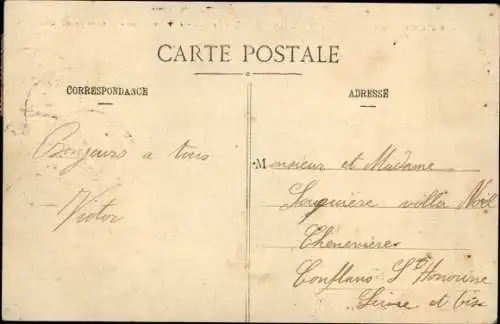 CARTE POSTALE
CORRESPONDANCE
ADRESSE
Bonjours a tous
Victor
Monsieur et Madame
villa Noël
Chenevière
Conflans Ste Honorine
Seine et Oise